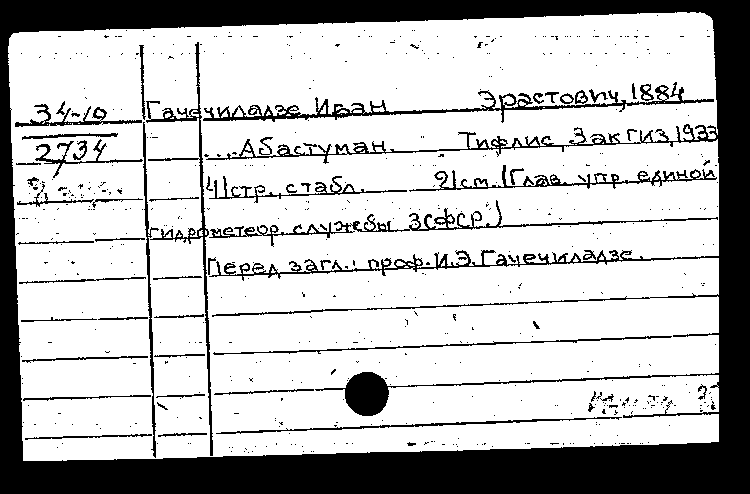 34-10 Гачечиладзе, Иван Эрастович, 1884
2734 ....Абастуман. Тифлис, Зак ГИЗ, 1933
41 стр., с табл. 21 см. (Глав. упр. единой
гидрометеор. службы ЗСФСР.)
Перед загл.: проф. И.Э. Гачечиладзе.